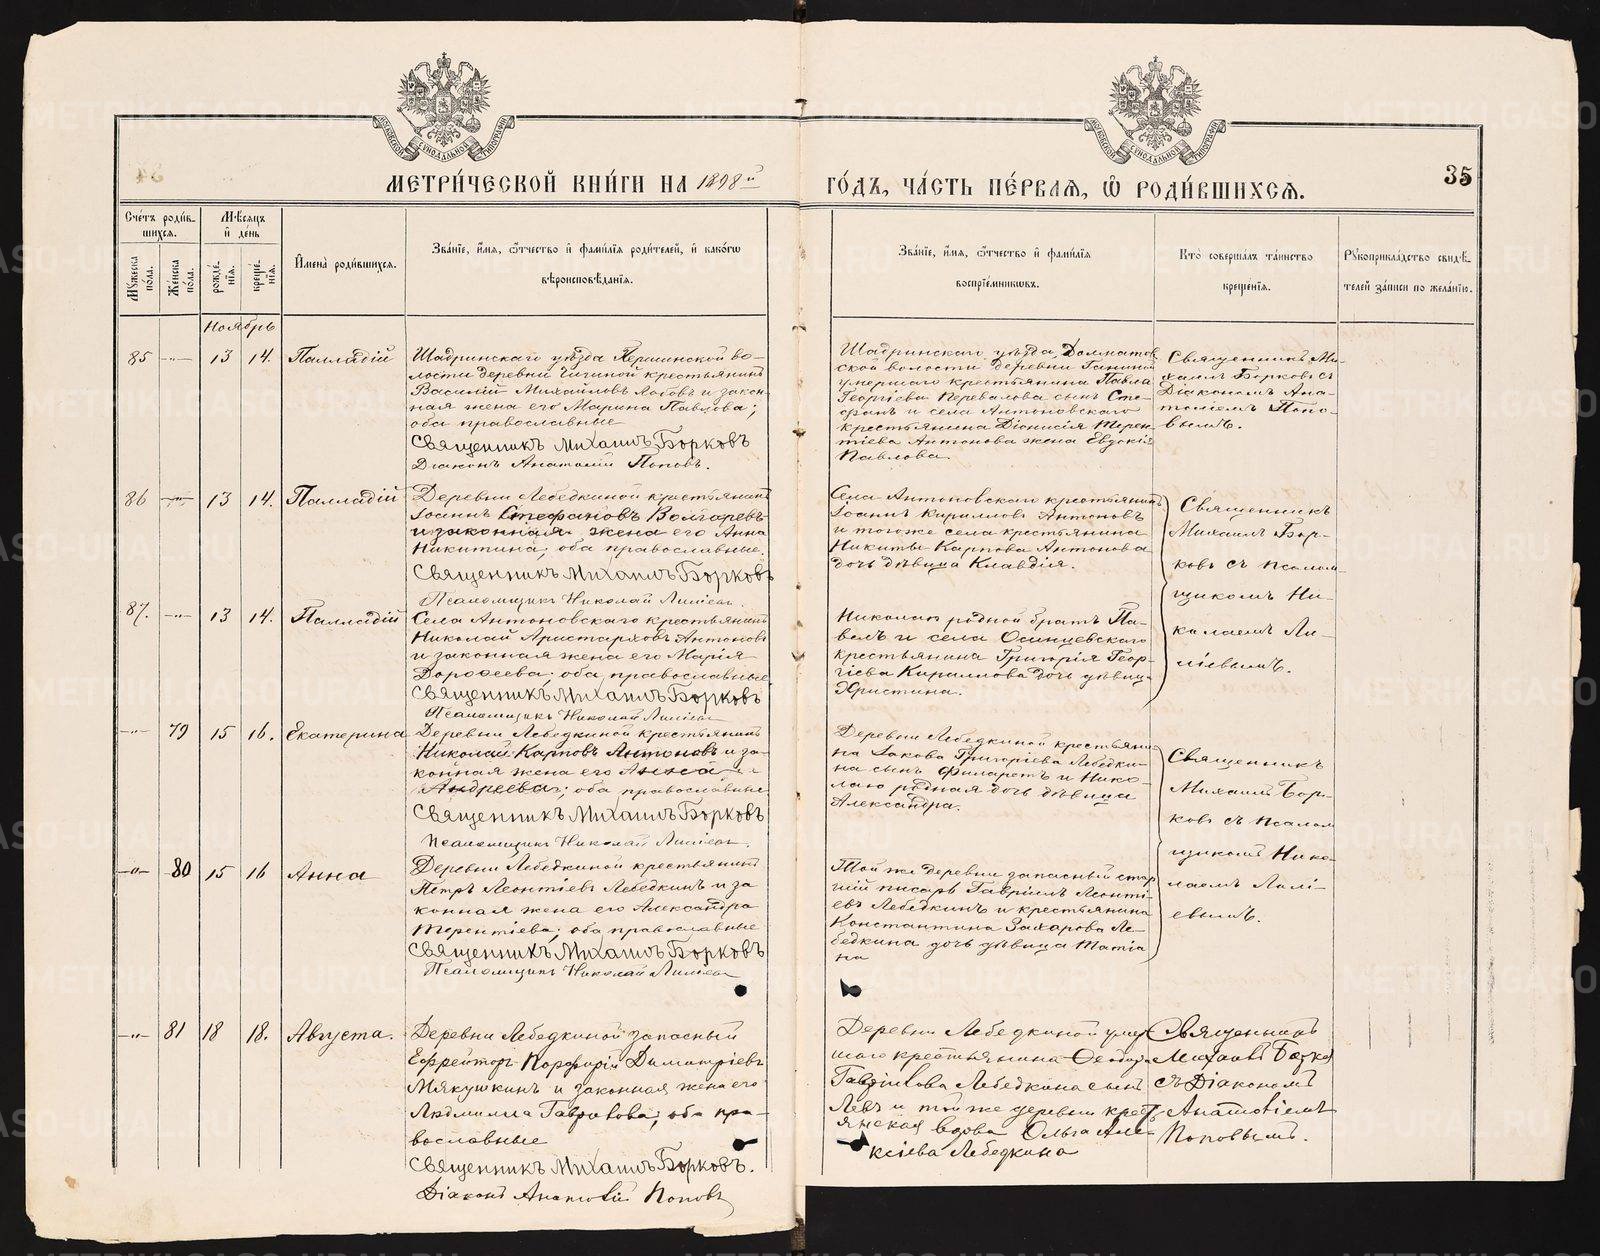 МЕТРИ́ЧЕСКОЙ КНИ́ГИ НА 1898й
ГО́ДЪ, ЧА́СТЬ ПЕ́РВАѦ, Ѿ РОДИ́ВШИХСѦ.
35
Сче́тъ роди́в-
шихся.
Мѣ́сяцъ
и де́нь
Му́жеска по́ла.
Же́нска по́ла.
рожде́-
нїя.
креще́-
нїя.
Имена̀ роди́вшихся.
Зва́нїе, и́мя, ѻ́тчество и фами́лїя роди́телей, и како́гѡ
вѣроисповѣ́данїя.
Зва́нїе, и́мя, ѻ́тчество и фами́лїя
воспрїе́мникѡвъ.
Кто̀ соверша́лъ та́инство
креще́нїя.
Рꙋкоприкла́дство свидѣ́-
телей за́писи по жела́нїю.
Ноябрь
85 -„- 13 14. Палладій
Шадринскаго уѣзда Першинской во-
лости деревни Чигиной крестьянинъ
Василій Михайловъ Лобовъ и закон-
ная жена его Марина Павлова;
оба православные
Священникъ Михаилъ Борковъ
Діаконъ Анатолій Поповъ.
Шадринскаго уѣзда Долматов-
ской волости деревни Ганиной
умершаго крестьянина Павла
Георгіева Перевалова сынъ Сте-
фанъ и села Антоновскаго
крестьянина Діонисія Терен-
тіева Антонова жена Евдокія
Павлова.
Священникъ Ми-
хаилъ Борковъ съ
Діакономъ Ана-
толіемъ Попо-
вымъ.
86 -„- 13 14. Палладій
Деревни Лебедкиной крестьянинъ
Іоаннъ Стефановъ Волгаревъ
и законная жена его Анна
Никитина; оба православные.
Священникъ Михаилъ Борковъ
Псаломщикъ Николай
Села Антоновскаго крестьянинъ
Іоаннъ Кирилловъ Антоновъ
и тогоже села крестьянина
Никиты Карпова Антонова
дочь дѣвица Клавдія.
Священникъ
Михаилъ Бор-
ковъ съ псалом-
щикомъ Ни-
колаемъ
87. -„- 13 14. Палладій
Села Антоновскаго крестьянинъ
Николай Аристарховъ Антоновъ
и законная жена его Марія
Дорофеева; оба православные
Священникъ Михаилъ Борковъ
Псаломщикъ Николай
Николаю родной братъ Па-
велъ и села Осинцевскаго
крестьянина Григорія Геор-
гіева Кириллова дочь дѣвица
Христина.
-„- 79 15 16. Екатерина
Деревни Лебедкиной крестьянинъ
Николай Карповъ Антоновъ и за-
конная жена его Анна
Андреева; оба православные
Священникъ Михаилъ Борковъ
Псаломщикъ Николай
Деревни Лебедкиной крестьяни-
на Іакова Григоріева Лебедки-
на сынъ Филаретъ и Нико-
лаю родная дочь дѣвица
Александра.
Священникъ
Михаилъ Бор-
ковъ съ псалом
щикомъ Нико-
лаемъ
-„- 80 15 16 Анна
Деревни Лебедкиной крестьянинъ
Петръ Леонтіевъ Лебедкинъ и за
конная жена его Александра
Терентіева; оба православные
Священникъ Михаилъ Борковъ
Псаломщикъ Николай
Той же деревни запасный стар
шій писарь Гавріилъ Леонті-
евъ Лебедкинъ и крестьянина
Константина Захарова Ле-
бедкина дочь дѣвица Татіа
на
-„- 81 18 18. Августа.
Деревни Лебедкиной запасный
Ефрейторъ Порфирій Димитріевъ
Мякушкинъ и законная жена его
Людмилла Гаврилова; оба пра-
вославные
Священникъ Михаилъ Борковъ.
Діаконъ Анатолій Поповъ
Деревни Лебедкиной умер-
шаго крестьянина Ѳеодора
Гаврилова Лебедкина сынъ
Левъ и той же деревни крест-
янская вдова Ольга Але-
ксіева Лебедкина
Священникъ
Михаилъ Борков
съ Діакономъ
Анатоліемъ
Поповымъ.